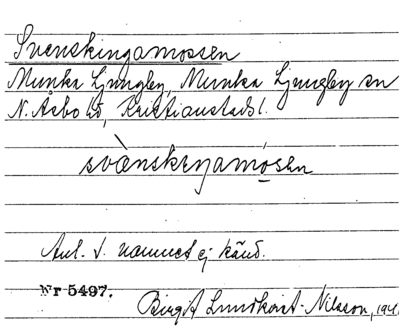 Svenskingamossen
Munka Ljungby, Munka Ljungby sn
N. Åsbo hd, Kristianstads l.
svènskeŋamòsen
Anl. t. namnet ej känd.
Nr 5497.
Birgit Lundkvist-Nilsson, 194